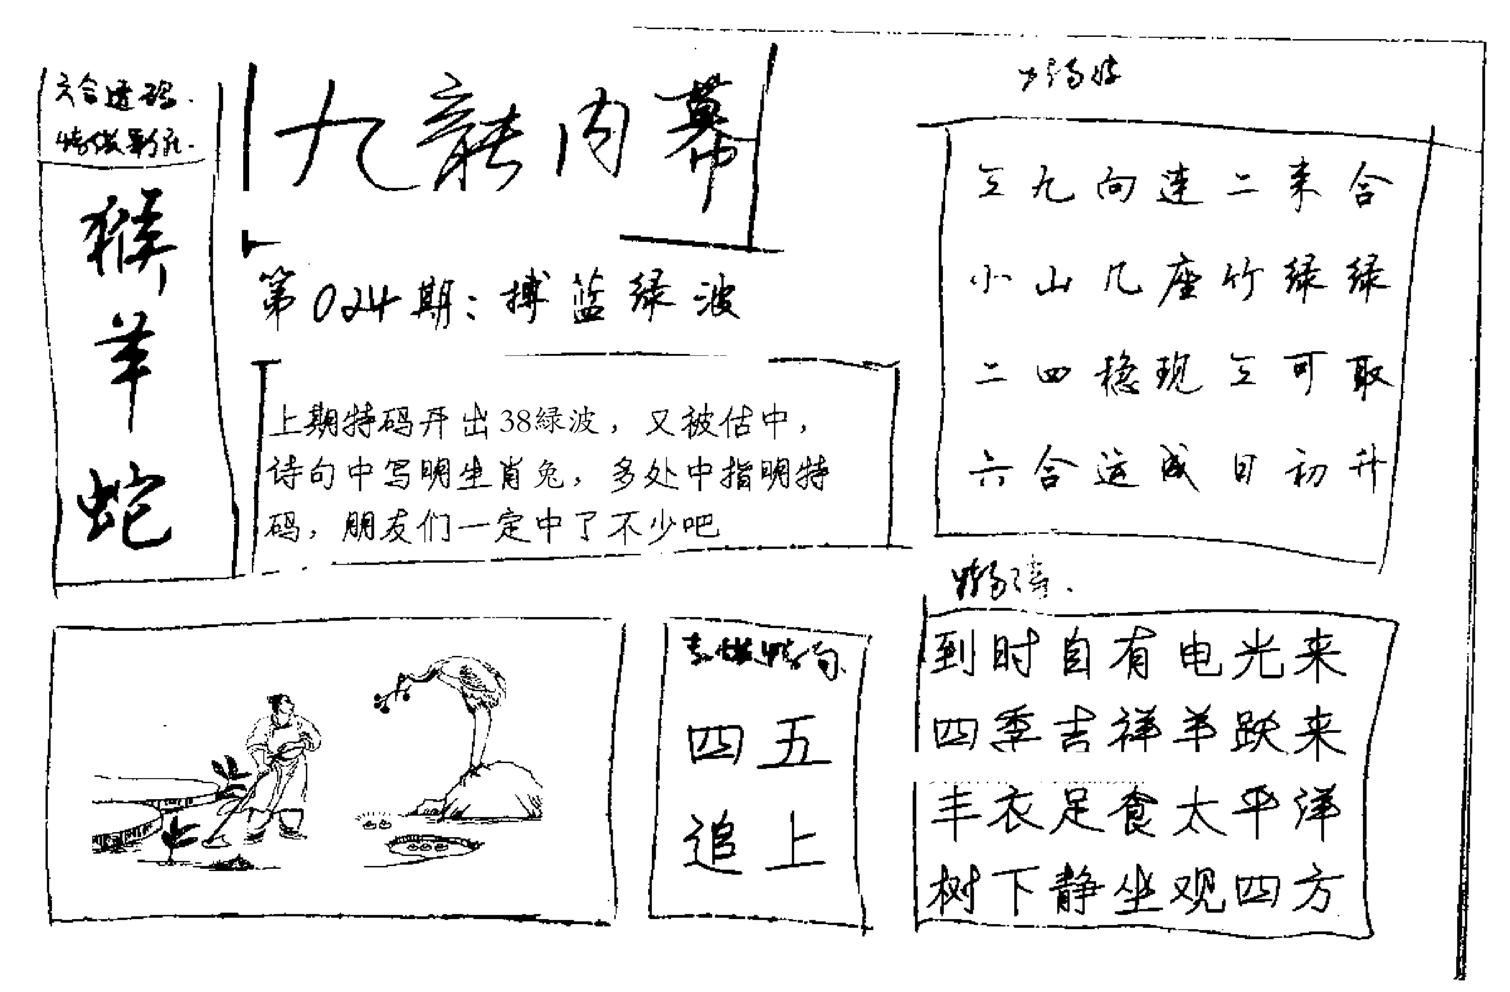 六合透码.
九龍内幕
猴
羊
蛇
第024期：搏蓝绿波
上期特码开出38緑波，又被估中，
诗句中写明生肖兔，多处中指明特
码，朋友们一定中了不少吧
三九向连二来合
小山几座竹绿绿
二四稳现三可取
六合运成日初升
四五
追上
到时自有电光来
四季吉祥羊跃来
丰衣足食太平洋
树下静坐观四方